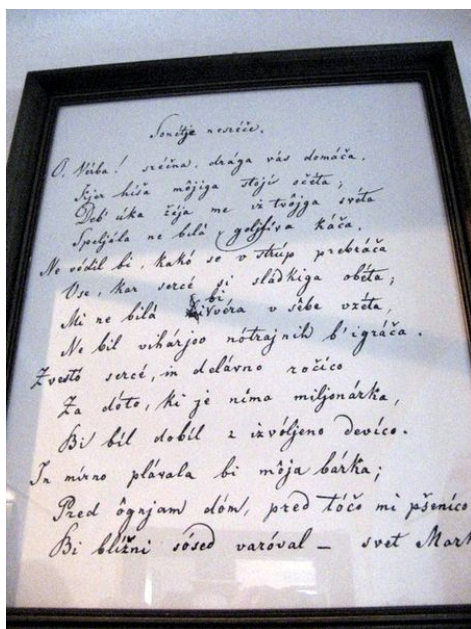 Sonetje nesréče.
O, Vérba! sréčna, drága vás domáča,
Kjer híša môjiga stojí očéta;
Deb' úka žéja me iz tvôjga svéta
Speljála ne bilá, goljfíva káča.
Ne védil bi, kakó se v strúp prebráča
Vse, kar sercé si sládkiga obéta;
Mi ne bilá bi véra v sêbe vzéta,
Ne bil vihárjov nótrajnih b' igráča.
Zvestó sercé, in delávno ročíco
Za dóto, ki je níma miljonárka,
Bi bil dobíl z izvóljeno devíco.
In mírno plávala bi môja bárka;
Pred ôgnjam dóm, pred tóčo mi pšeníco
Bi blížni sósed varóval – svet Mark